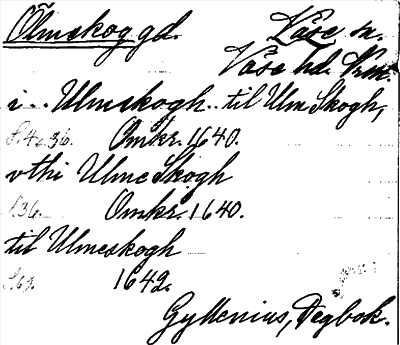 Ölmskog gd. Väse sn.
Väse hd. Vrml.
i .. Ulmskogh .. til Ulm Skogh,
S. 4. 36. Omkr. 1640.
vthi Ulme Skogh
S. 36. Omkr. 1640.
til Ulmeskogh
S. 69. 1642.
Gyllenius, Degbok.